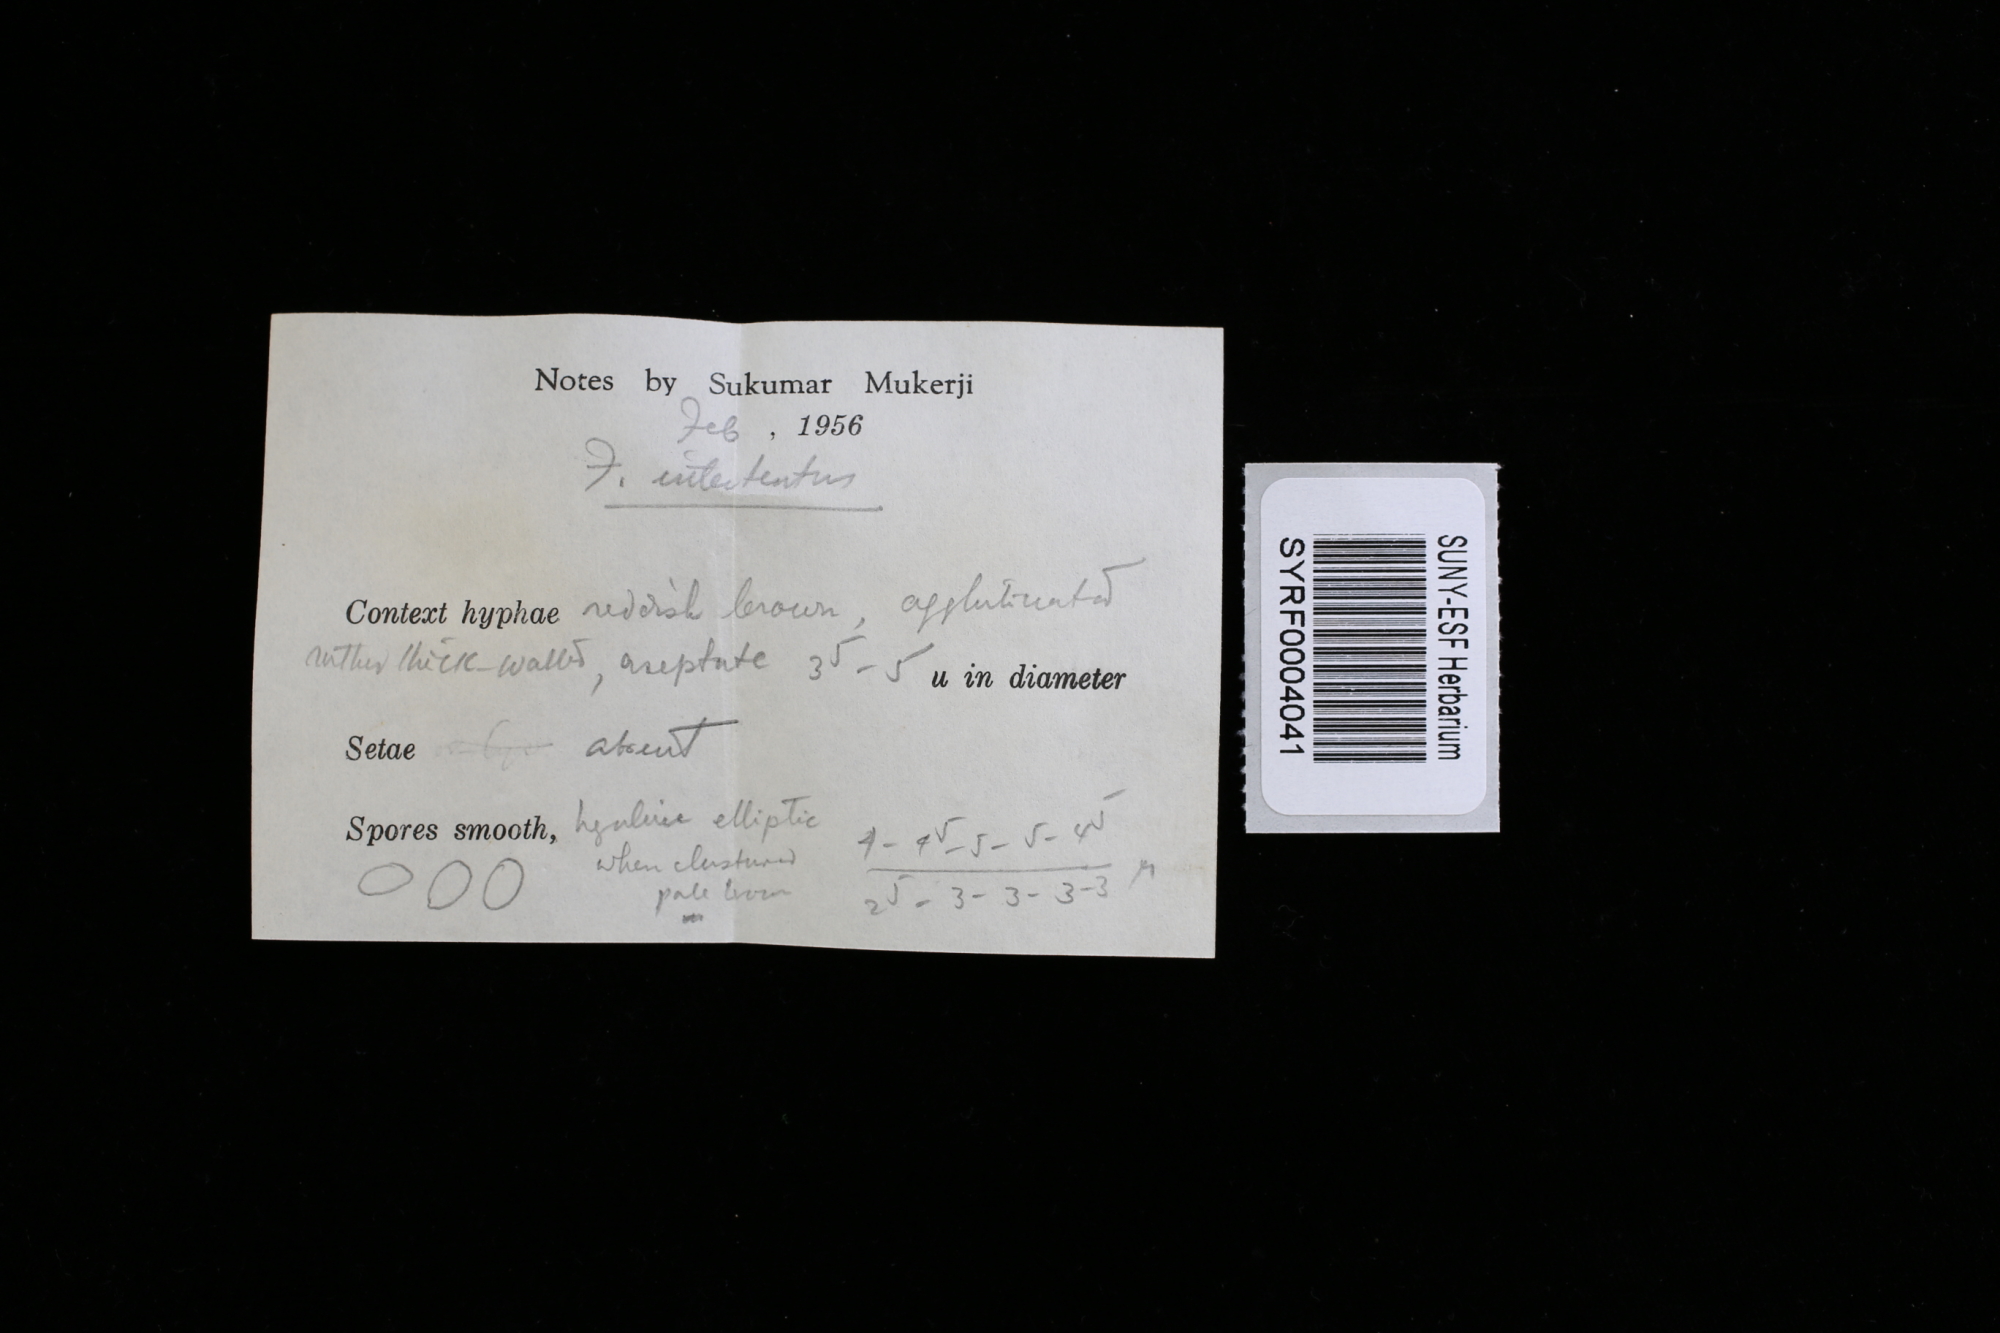 Notes by Sukumar Mukerji
Feb , 1956
F.
Context hyphae reddish brown, agglutinated
rather thick-walled, aseptate 3⁵ - 5 u in diameter
Setae absent
Spores smooth, hyaline elliptic
when clustured
pale brown
4 - 4⁵ - 5 - 5 - 4⁵
2⁵ - 3 - 3 - 3 - 3 μ
SUNY-ESF Herbarium
SYRF0004041